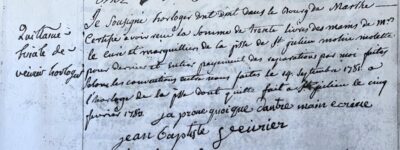 quittance
finale de
veuvrier horloger
Je soussigné horloger demeurant dans le Bourg de Marlhe
Certifie avoir reçu la somme de trente livres des mains de mrs
le curé et marguilliers de la psse de st julien molin molette
pour dernier et entier payement des reparations par moi faites
selon les conventions entre nous faites le 29 septembre 1781 a
l'horloge de la psse dont quitte fait a st julien le cinq
fevrier 1782 japrouve quoique d'autre main ecrit
jean Baptiste